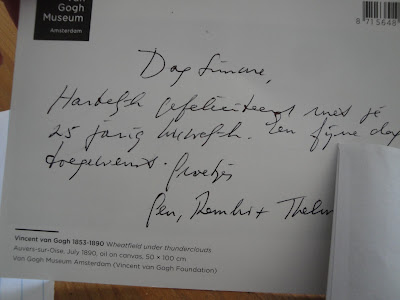 van
Gogh
Museum
Amsterdam
8 715648
Dag Simone,
Hartelijk gefeliciteerd met je
25 jarig huwelijk. Een fijne dag
toegewenst. Groetjes
Thelm
Vincent van Gogh 1853-1890 Wheatfield under thunderclouds
Auvers-sur-Oise, July 1890, oil on canvas, 50 × 100 cm
Van Gogh Museum Amsterdam (Vincent van Gogh Foundation)